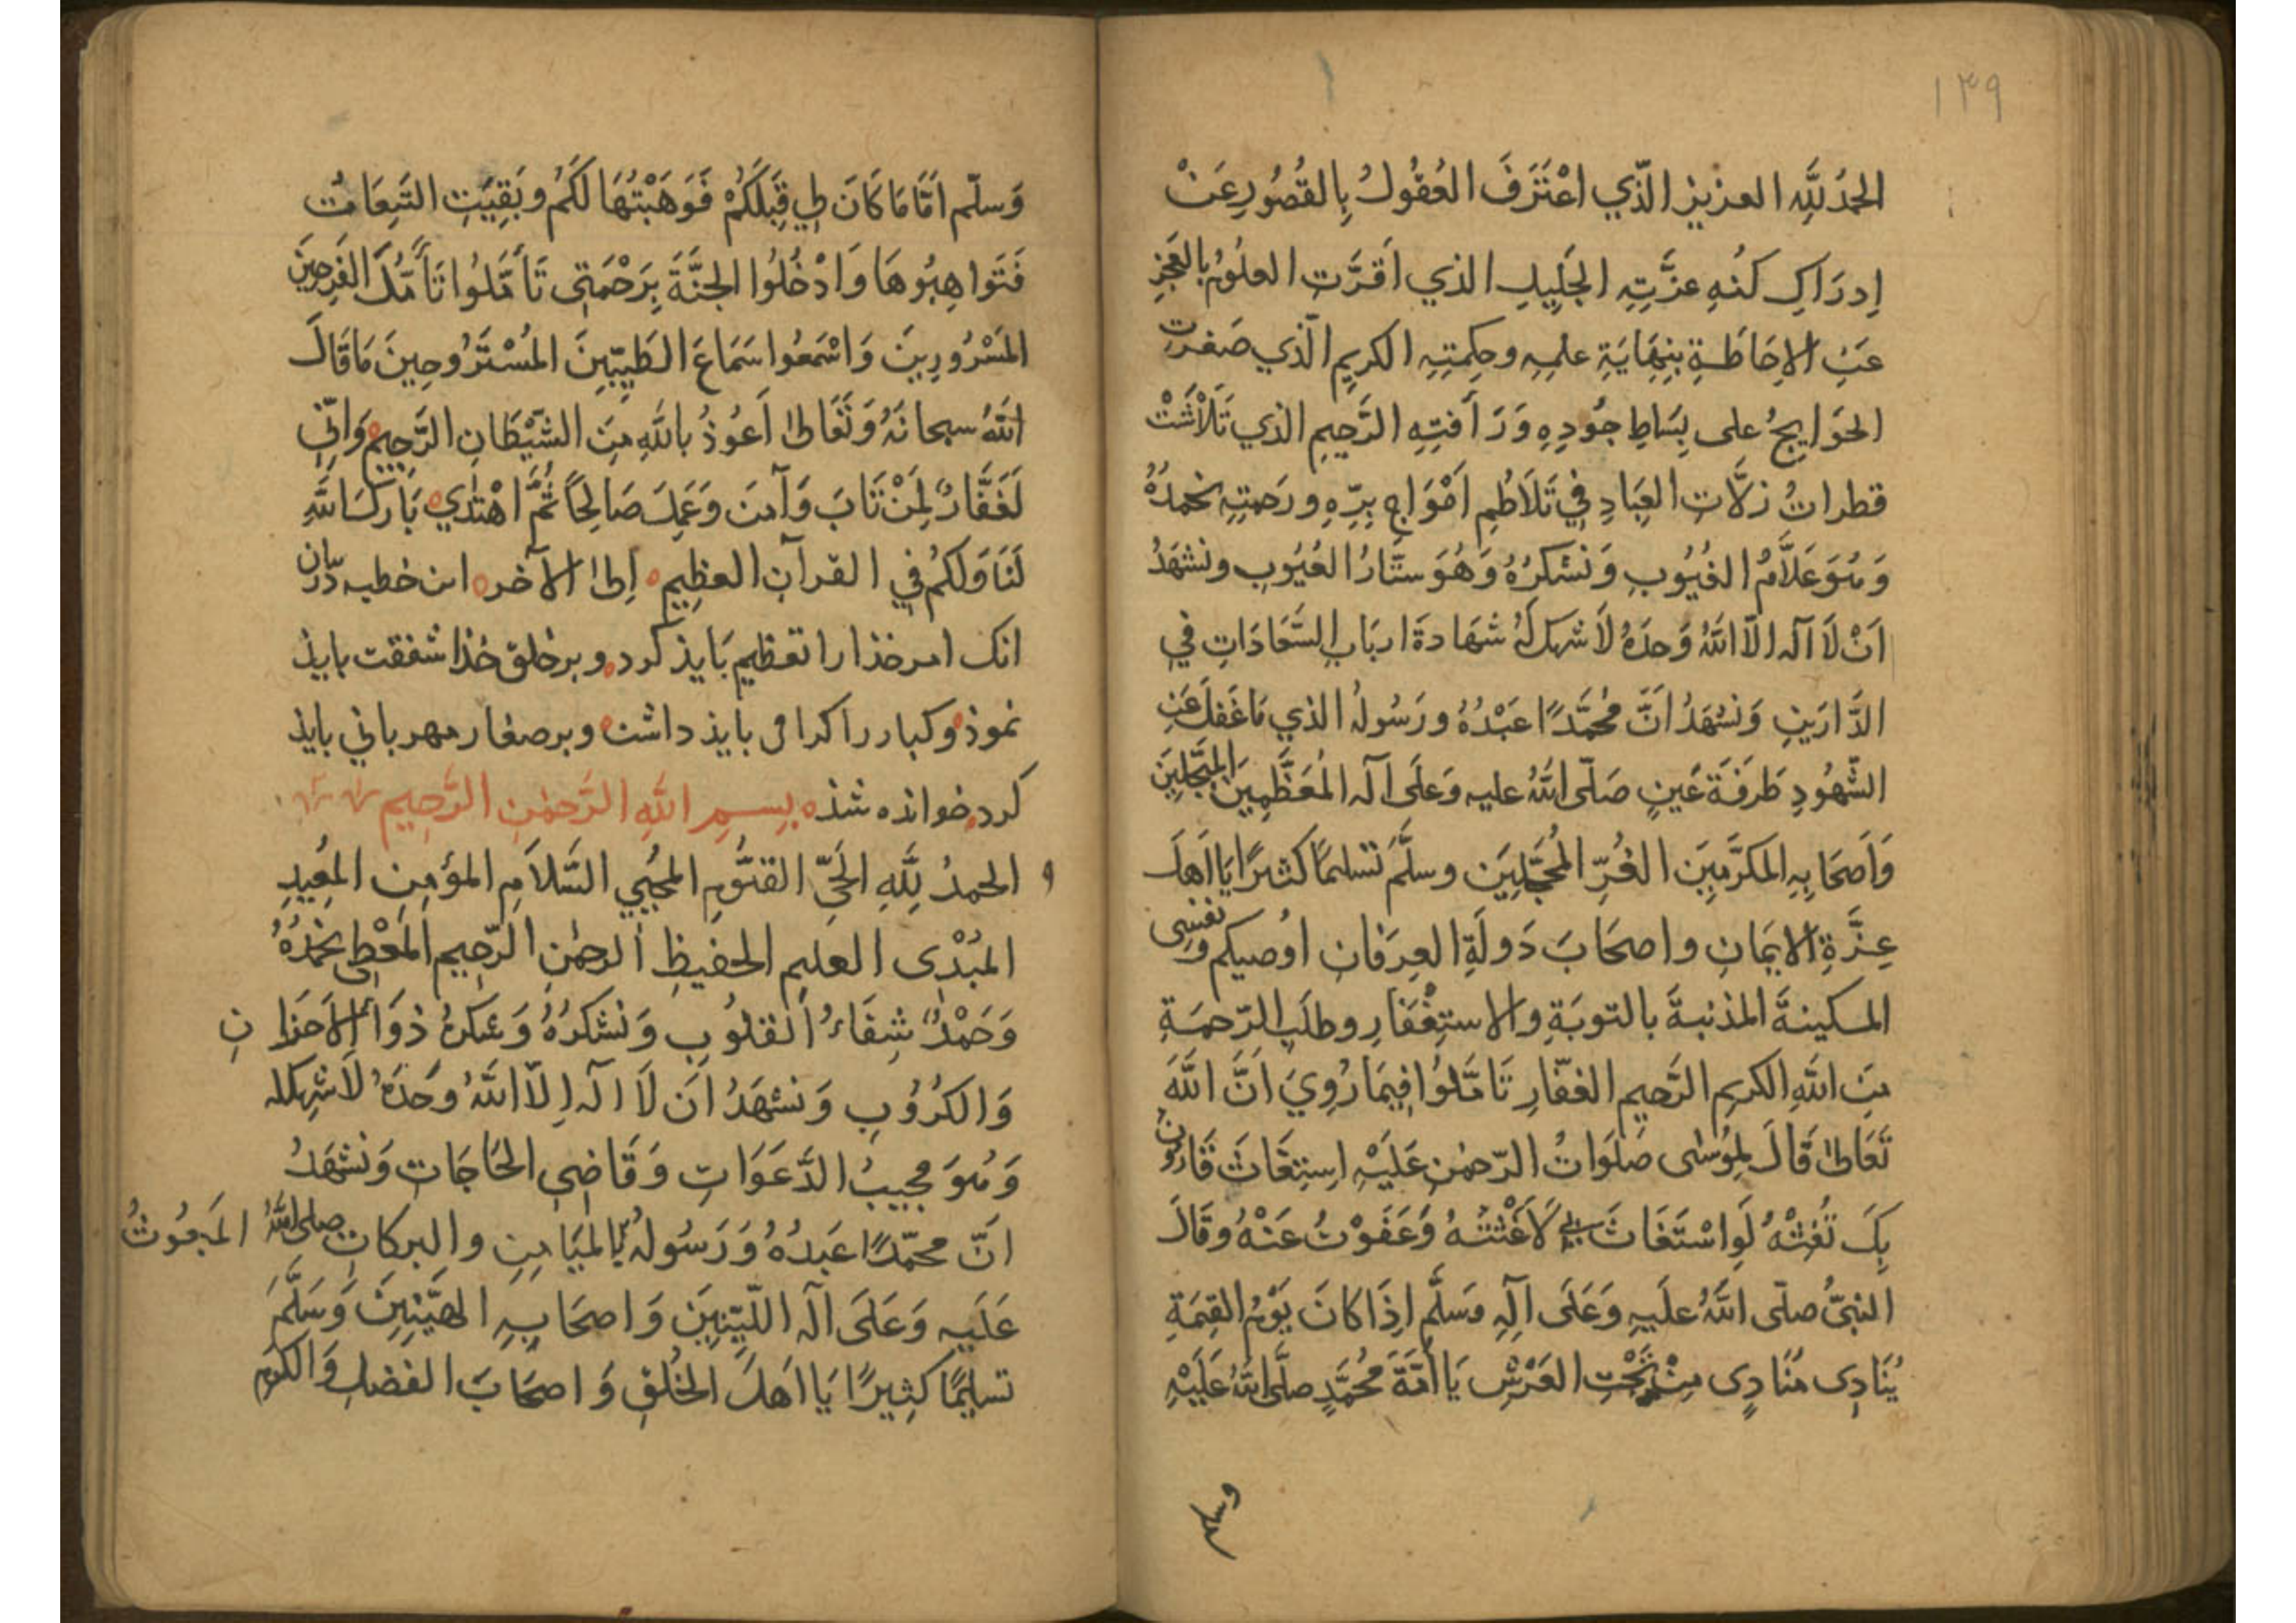 ۱۴۹
الحمدُ لِلّٰهِ العزيز الّذي اعْتَرَفَ العُقُولُ بِالقُصُورِ عَنْ
اِدرَاكِ كُنْهِ عزَّتِهِ الجَلِيلِ الذي اَقَرَّتِ العلُومُ بالعَجْزِ
عَنِ الاِحَاطَةِ بِنِهَايَةِ علمِهِ وحِكمتِهِ الكريمِ الّذي صَغرت
الحَوَايجُ على بِسَاطِ جُودِهِ وَرَأفتِهِ الرَّحِيمِ الذي تَلَاْشَتْ
قطراتُ زلَّاتِ العِبَادِ فِي تَلَاطُمِ اَمْوَاجِ بِرِّهِ ورَحمتِهِ نحمدُهُ
وَهُوَ عَلَّامُ الغُيُوبِ وَنَشكرُهُ وَهُوَ ستَّارُ العُيُوبِ ونشهَدُ
اَنْ لَا اله الّا اللّٰهُ وَحدَهُ لَا شريك لَهُ شهَادةَ اربَابِ السَّعَادَاتِ فِي
الدَّارَينِ وَنشهَدُ اَنَّ مُحَمَّدًا عَبْدُهُ ورَسُولُهُ الذي مَا غَفلَ عَنِ
الشّهُودِ طَرفَةَ عَينٍ صَلّى اللّٰهُ عليه وَعَلَى اله المُعَظَّمِينَ المبَجَّلِينَ
وَاَصحَابِهِ المكرَّمِينَ الغُرِّ المُحَجَّلِينَ وسلَّمَ تسليمًا كثيرًا يَا اَهلَ
عِزَّةِ الايمَانِ واصحَابَ دَولَةِ العِرفَانِ اُوصيكم ونفسِي
المسكينةَ المذنبةَ بالتوبَةِ والاستِغْفَارِ وطلَبِ الرّحمَةِ
مِنَ اللّٰهِ الكريمِ الرَّحيمِ الغفّارِ تَامَّلُوا فِيمَا رُوِيَ اَنَّ اللّٰهَ
تَعَالٰى قَالَ لِمُوسٰى صَلَوَاتُ الرّحمٰنِ عَلَيْهِ اِستِغَاثَ قَارُونُ
بِكَ تُغِثْهُ لَوِ اسْتَغَاثَ بِي لَاَغَثْتُهُ وَعَفَوْتُ عَنْهُ وقَالَ
النبيُّ صلّى اللّٰهُ علَيهِ وَعَلَى آلِهِ وَسَلَّم اِذَا كانَ يَوْمُ القِيمَةِ
يُنَادِى مُنَادِى مِنْ تَحْتِ العَرْشِ يَا اُمَّةَ مُحُمَّدٍ صلَّى اللّٰهُ عَلَيْهِ
وسلم
وَسلّم اَمَّا مَا كَانَ لِي قِبَلَكُمْ فَوَهَبْتُهَا لكُم وبَقِيَتِ التَّبِعَاتُ
فَتَواهِبُوهَا وَادْخُلُوا الجنَّةَ بِرَحْمَتِي تَأَمَّلُوا تَأَمُّلَ الفَرِحِينَ
المَسْرُورِينَ وَاسْمَعُوا سَمَاعَ الطَيِّبِينَ المُسْتَرْوحِينَ مَا قَالَ
اللّٰهُ سبحانَهُ وَتَعَالٰى اَعُوذُ بِاللّٰهِ مِنَ الشَّيْطَانِ الرَّجِيمِ وَاِنِّي
لَغَفَّارٌ لِمَنْ تَابَ وَآمنَ وَعَمِلَ صَالِحًا ثُمَّ اهْتَدٰي بَارَكَ اللّٰهُ
لَنَا وَلَكُمْ فِي القرآنِ العظِيمِ اِلىٰ الآخر اين خطبه در بيان
انك امر خذا را تعظيم بَايذ كرد وبر خلق خذا شفقت بايذ
نموذ وكبار را كرامى بايذ داشت وبر صغار مهربانى بايذ
كرد خوانده شذ بِسمِ اللّٰهِ الرَّحمٰنِ الرَّحِيمِ
و الحمدُ لِلّٰهِ الحَيِّ القيُّومِ المحيي السَّلَامِ المؤمنِ المعِيدِ
المبْدى العليمِ الحفيظِ الرحمٰنِ الرّحِيمِ المعْطِى نحمدُهُ
وَحَمْدُهُ شِفَاءُ القلُوبِ وَنشكرُهُ وَشكرُهُ دوَاءُ الاَحزَانِ
وَالكرُوُبِ وَنشهَدُ اَن لَا اله اِلّا اللّٰهُ وحدَهُ لَا شريك له
وَهُوَ مجيبُ الدَّعَوَاتِ وَقَاضِي الحَاجَاتِ وَنشهَدُ
انّ محمّدًا عَبدُهُ وَرَسُولُهُ المَبعُوثُ بِالمَيَامِنِ والبركاتِ صلى اللّٰهُ
عَلَيهِ وَعَلَى آله اللّيّنِينَ وَاصحَابِهِ الهَيّنِينَ وَسَلَّمَ
تسليمًا كثِيرًا يَا اَهلَ الخُلقِ وَاصحَابَ الفضلِ وَالكرَمِ